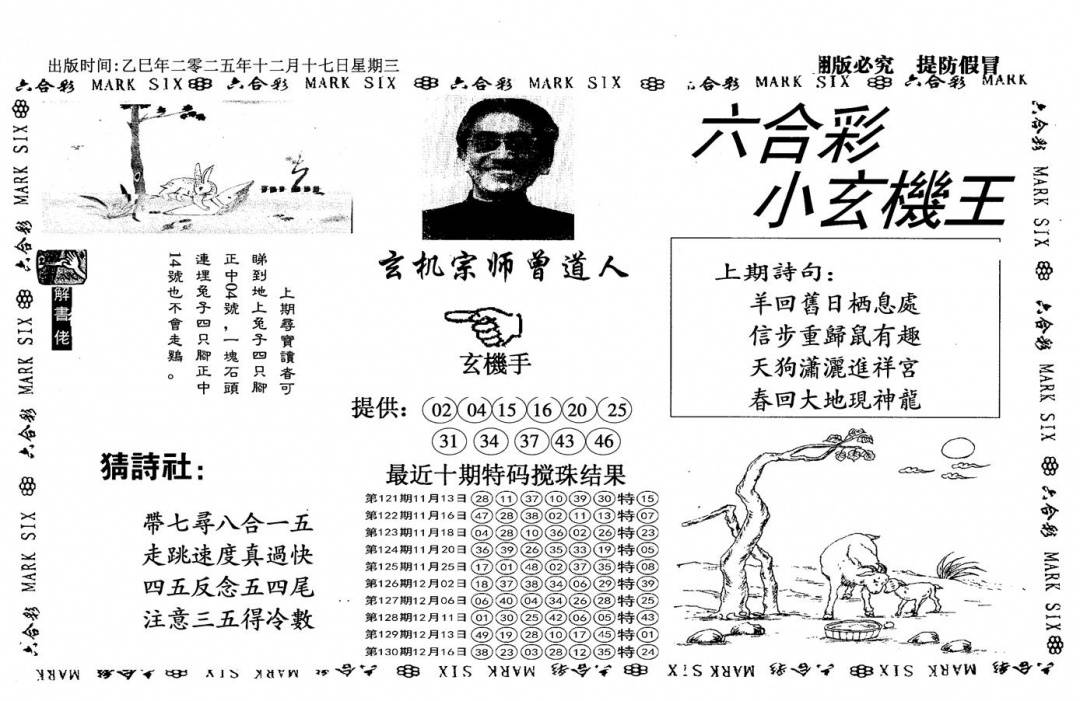 出版时间:乙巳年二零二五年十二月十七日星期三
翻版必究 提防假冒
六合彩 MARK SIX 六合彩 MARK SIX 六合彩 MARK SIX 六合彩 MARK SIX 六合彩 MARK
六合彩 MARK SIX 六合彩 MARK SIX 六合彩 MARK SIX
六合彩
小玄機王
解書佬
上期尋寶讀者可
睇到地上兔子四只腳
正中04號，一塊石頭
連埋兔子四只腳正中
14號也不會走鷄。
玄机宗师曾道人
玄機手
提供： 02 04 15 16 20 25
31 34 37 43 46
上期詩句：
羊回舊日栖息處
信步重歸鼠有趣
天狗瀟灑進祥宮
春回大地現神龍
猜詩社：
帶七尋八合一五
走跳速度真過快
四五反念五四尾
注意三五得冷數
最近十期特码搅珠结果
第121期11月13日 28 11 37 10 39 30 特 15
第122期11月16日 47 28 38 02 11 13 特 07
第123期11月18日 04 28 10 36 02 26 特 23
第124期11月20日 36 39 26 35 33 19 特 05
第125期11月25日 17 01 48 02 37 35 特 08
第126期12月02日 18 37 38 34 06 29 特 39
第127期12月06日 06 40 04 34 26 28 特 25
第128期12月11日 01 30 25 42 06 05 特 43
第129期12月13日 49 19 28 10 17 45 特 01
第130期12月16日 38 23 03 28 12 35 特 24
六合彩 MARK SIX 六合彩 MARK SIX 六合彩 MARK SIX
MARK 六合彩 SIX MARK 六合彩 MARK SIX 六合彩 SIX MARK 六合彩 SIX MARK 六合彩